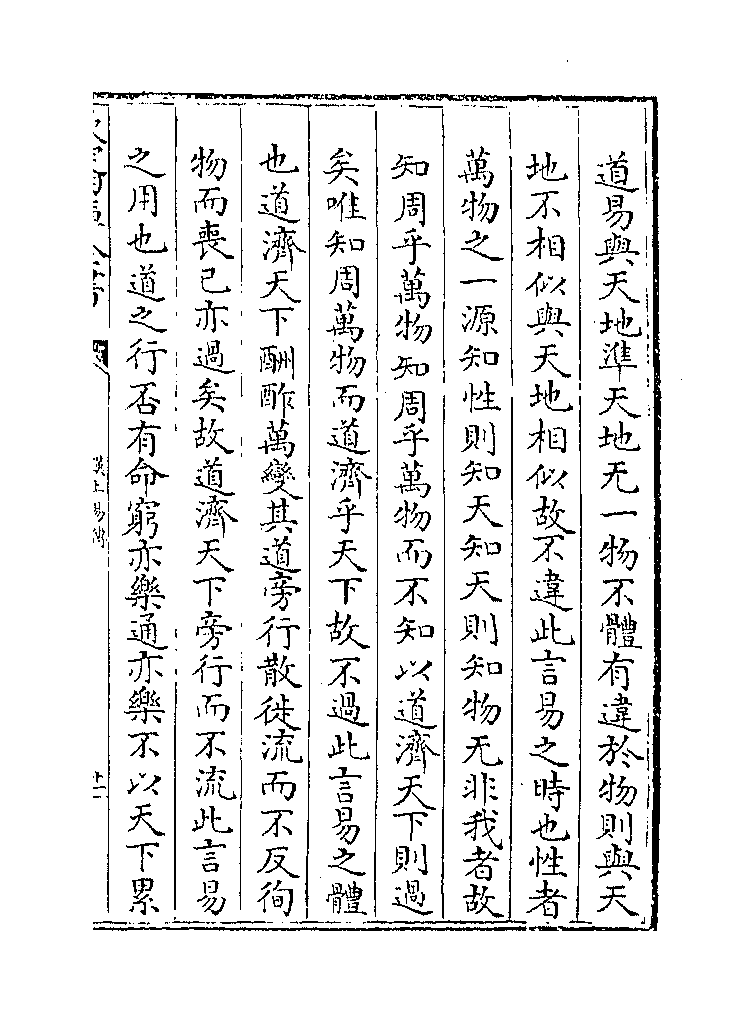 道易與天地準天地无一物不體有違於物則與天
地不相似與天地相似故不違此言易之時也性者
萬物之一源知性則知天知天則知物无非我者故
知周乎萬物知周乎萬物而不知以道濟天下則過
矣唯知周萬物而道濟乎天下故不過此言易之體
也道濟天下酬酢萬變其道旁行散徙流而不反徇
物而喪己亦過矣故道濟天下旁行而不流此言易
之用也道之行否有命窮亦樂通亦樂不以天下累
漢上易傳
十一